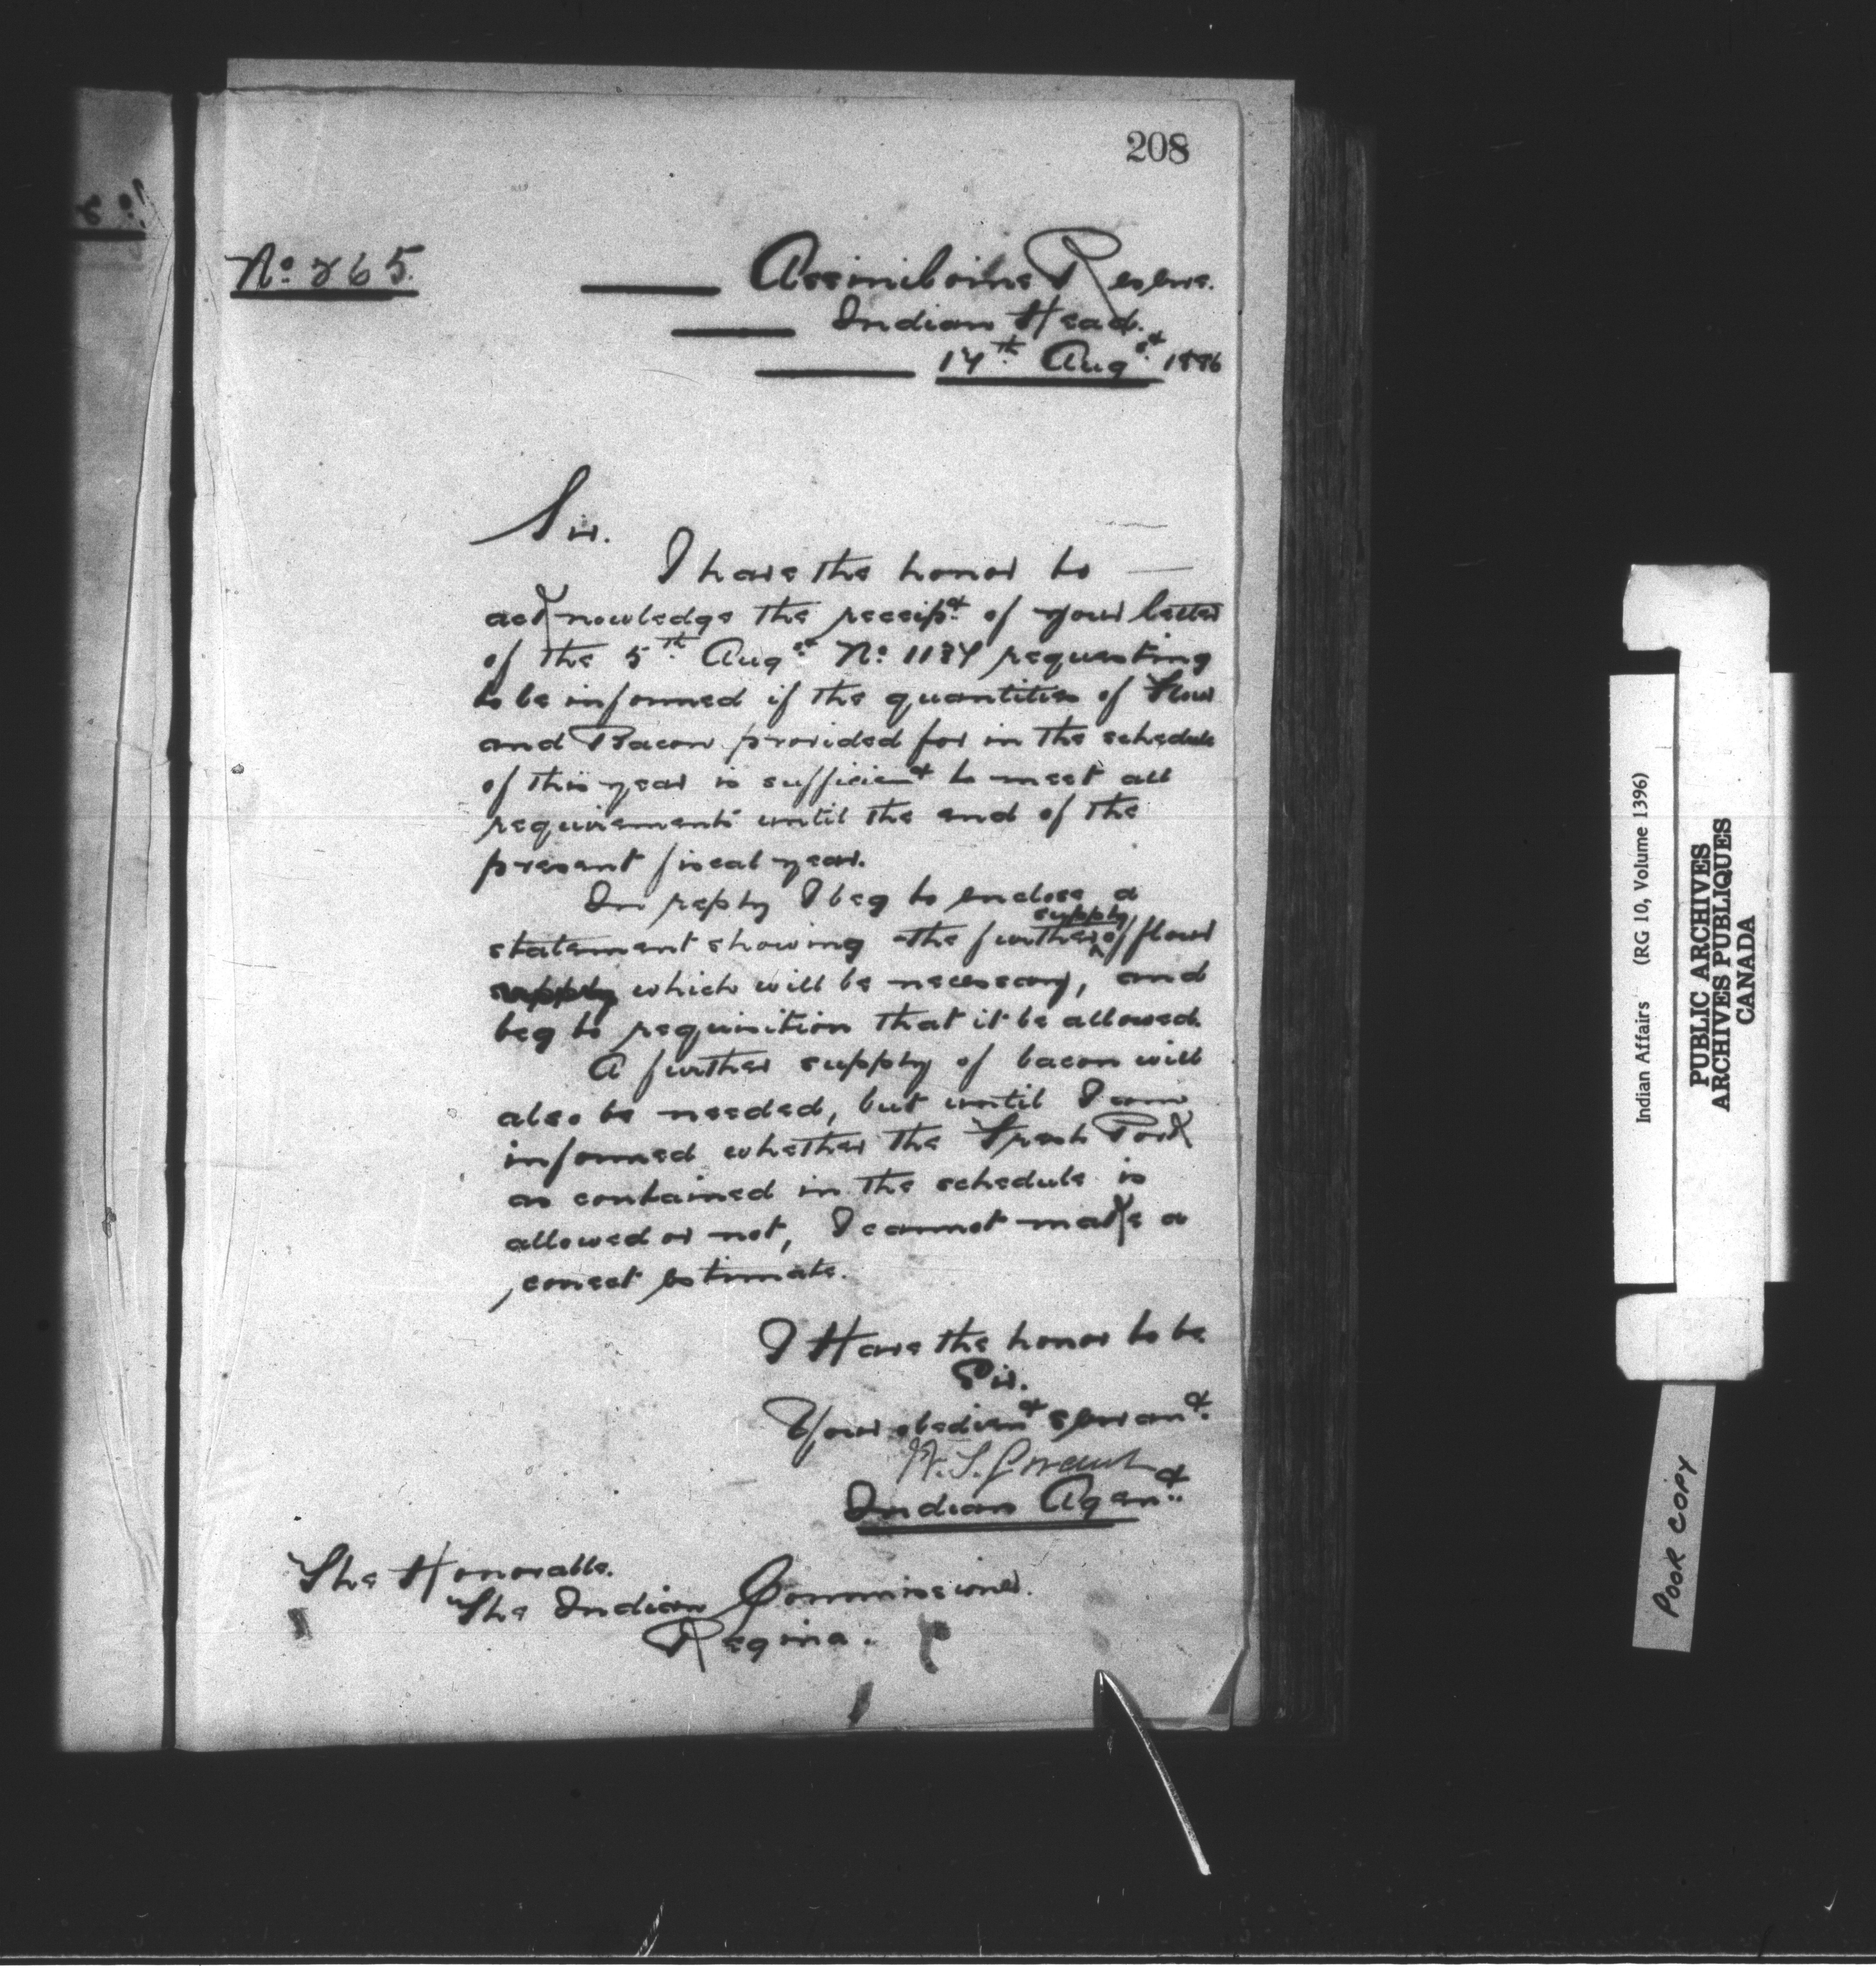 208
No 265.
Assiniboine Reserve.
Indian Head.
14th Augst 1886
Sir.
I have the honor to
acknowledge the receipt of your letter
of the 5th Augst No 1184 requesting
to be informed if the quantities of Flour
and Bacon provided for in the schedule
of this year is sufficient to meet all
requirements until the end of the
present fiscal year.
In reply I beg to enclose a
statement showing the further supply of flour
supply which will be necessary, and
beg to requisition that it be allowed.
A further supply of bacon will
also be needed, but until I am
informed whether the Fresh Pork
as contained in the schedule is
allowed or not, I cannot make a
correct estimate.
I Have the honor to be
Sir.
Your obedient servant.
W. S. Grant
Indian Agent
The Honorable.
The Indian Commissioner.
Regina.
Indian Affairs (RG 10, Volume 1396)
PUBLIC ARCHIVES
ARCHIVES PUBLIQUES
CANADA
POOR COPY